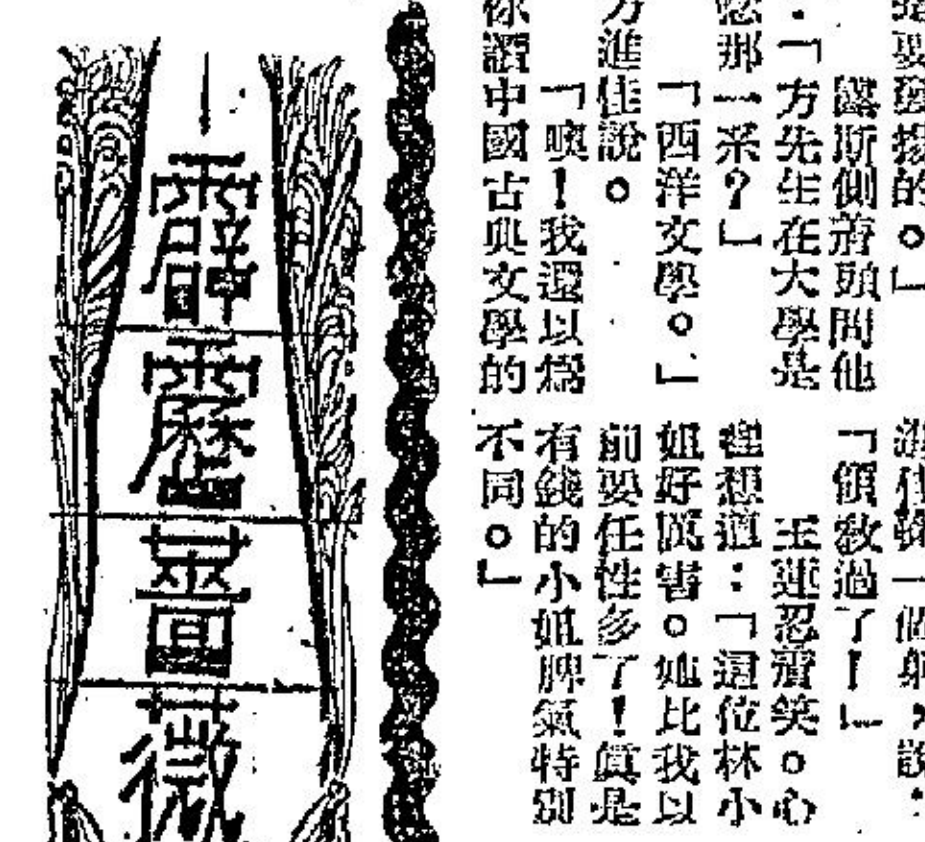 要發揚的。」
露斯側着頭問他
:「方先生在大學是
唸那一系?」
「西洋文學。」
方進佳說。
「噢!我還以爲
你讀中國古典文學的
佳鞠一個躬,說:
「領教過了!」
王連忍着笑。心
裡想道:「這位林小
姐好厲害。她比我以
前要任性多了!真是
有錢的小姐脾氣特別
不同。」
霹靂薔薇